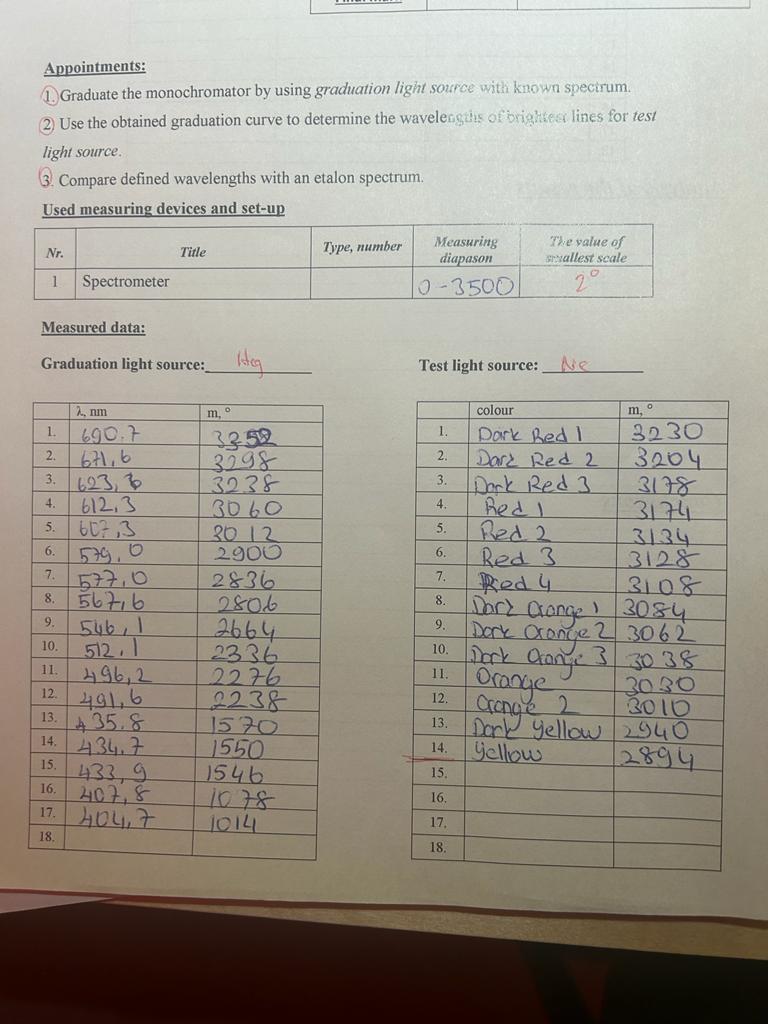 Appointments:
1. Graduate the monochromator by using graduation light source with known spectrum.
2) Use the obtained graduation curve to determine the wavelengths of brightest lines for test
light source.
3. Compare defined wavelengths with an etalon spectrum.
Used measuring devices and set-up
Nr. Title Type, number Measuring diapason The value of smallest scale
1 Spectrometer 0-3500 2°
Measured data:
Graduation light source: Hg
λ, nm m, °
1. 690.7 3352
2. 671,6 3298
3. 623,3238
4. 612,3 3060
5. 607,3 3012
6. 579,0 2900
7. 577,0 2836
8. 567,6 2806
9. 546,1 2664
10. 512,1 2336
11. 496,2 2276
12. 491,6 2238
13. 435.8 1570
14. 434,7 1550
15. 433,9 1546
16. 407,8 1078
17. 404,7 1014
18.
Test light source: Ne
colour m, °
1. Dark Red 1 3230
2. Dark Red 2 3204
3. Dark Red 3 3178
4. Red 1 3174
5. Red 2 3134
6. Red 3 3128
7. Red 4 3108
8. Dark Orange 1 3084
9. Dark Orange 2 3062
10. Dark Orange 3 3038
11. Orange 3030
12. Orange 2 3010
13. Dark Yellow 2940
14. Yellow 2894
15.
16.
17.
18.